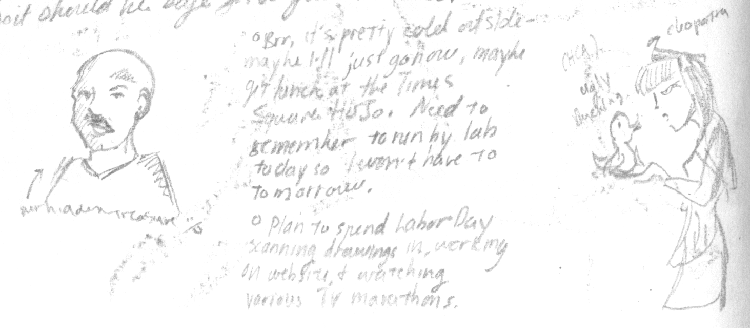 should he
Brr, it's pretty cold outside—
maybe I'll just go now, maybe
get lunch at the Times
Square HoJo. Need to
remember to run by lab
today so I won't have to
tomorrow.
Plan to spend Labor Day
scanning drawings in, working
on website, & watching
various TV marathons.
treasure
cleopatra
ugly
duckling